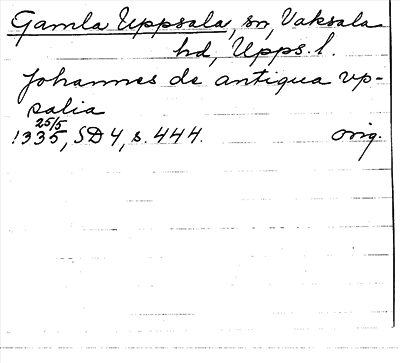 Gamla Uppsala, sn, Vaksala
hd, Upps. l.
Johannes de antiqua vp-
salia
1335 25/5, SD 4, s. 444. orig.